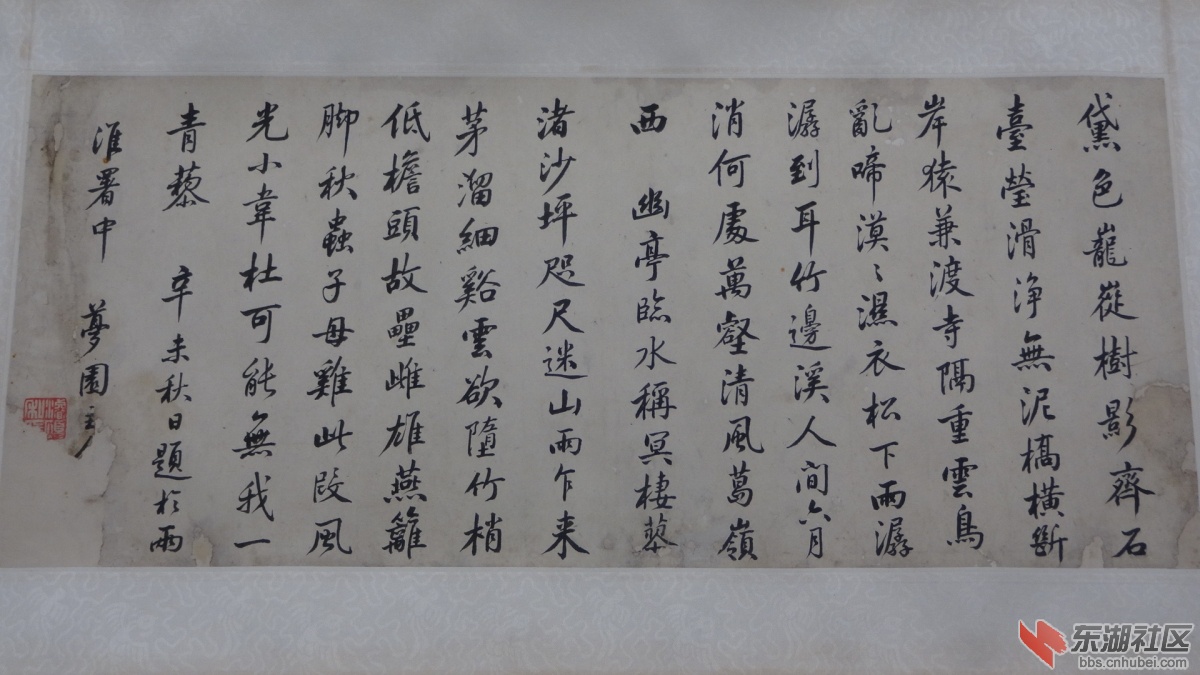 黛色巃嵸樹影齊石
臺瑩滑淨無泥橋橫斷
岸猿兼渡寺隔重雲鳥
亂啼漠〻濕衣松下雨潺
潺到耳竹邊溪人間六月
消何處萬壑清風葛嶺
西 幽亭臨水稱冥棲蓼
渚沙坪咫尺迷山雨乍来
茅溜細谿雲欲墮竹梢
低檐頭故壘雌雄燕籬
脚秋蟲子母雞此段風
光小韋杜可能無我一
青藜 辛未秋日題於兩
淮署中 夢園主人
东湖社区
bbs.cnhubei.com